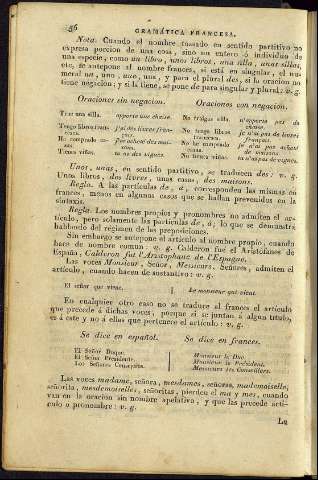 56
GRAMÁTICA FRANCESA.
Nota. Cuando el nombre tomado en sentido partitivo no
expresa porcion de una cosa, sino un entero ó individuo de
una especie, como un libro, unos libros, una silla, unas sillas,
etc. se antepone al nombre frances, si está en singular, el nu-
meral un, uno, une, una, y para el plural des, si la oracion no
tiene negacion; y si la tiene, se pone de para singular y plural: v. g.
Oraciones sin negacion.
Oraciones con negacion.
Trae una silla.
apporte une chaise.
No traigas silla.
n'apporte pas de
chaise.
Tengo libros fran-
ceses.
j'ai des livres fran-
No tengo libros
je n'ai pas de livres
français.
No compro casas.
de maisons.
Tienes viñas.
tu as des vignes.
No tienes viñas.
tu n'as pas de vignes.
Unos, unas, en sentido partitivo, se traducen des: v. g.
Unos libros, des livres, unas casas, des maisons.
Regla. A las partículas de, á, corresponden las mismas en
frances, menos en algunos casos que se hallan prevenidos en la
sintaxis.
Regla. Los nombres propios y pronombres no admiten el ar-
tículo, pero solamente las partículas de, á; lo que se demuestra
hablando del régimen de las preposiciones.
Sin embargo se antepone el artículo al nombre propio, cuando
hace de nombre comun v. g. Calderon fue el Aristófanes de
España, Calderon fut l'Aristophane de l'Espagne.
Las voces Monsieur, Señor, Messieurs, Señores, admiten el
artículo, cuando hacen de sustantivo: v. g.
El señor que vive.
Le monsieur qui vient.
En cualquier otro caso no se traduce al frances el artículo
que precede á dichas voces, porque si se juntan á algun título,
es á este y no á ellas que pertenece el artículo: v. g.
Se dice en español.
Se dice en frances.
El Señor Duque.
Monsieur le Duc.
El Señor Presidente.
Monsieur le Président.
Los Señores Consejeros.
Messieurs les Conseillers.
Las voces madame, señora, mesdames, señoras, mademoiselle,
señorita, mesdemoiselles, señoritas, pierden el ma y mes, cuando
van en la oracion sin nombre apelativo, y que las precede artí-
culo o pronombre: v. g.
La